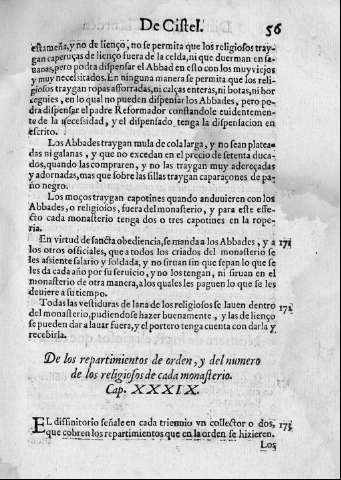 De Cistel. 56
estameña, y no de lienço, no se permita que los religiosos tray-
gan caperuças de lienço fuera de la celda, ni que duerman en sa-
uanas, pero podra dispensar el Abbad en esto con los muy viejos
y muy necesitados. En ninguna manera se permita que los reli-
giosos traygan ropas afforradas, ni calças enteras, ni botas, ni bor
zeguies, en lo qual no pueden dispensar los Abbades, pero po-
dra dispensar el padre Reformador constandole euidentemen-
te de la necesidad, y el dispensado tenga la dispensacion en
escrito.
Los Abbades traygan mula de cola larga, y no sean platea-
das ni galanas, y que no excedan en el precio de setenta duca-
dos, quando las compraren, y no las traygan muy adereçadas
y adornadas, mas que sobre las sillas traygan caparaçones de pa-
ño negro.
Los moços traygan capotines quando anduuieren con los
Abbades, o religiosos, fuera del monasterio, y para este effe-
cto cada monasterio tenga dos o tres capotines en la rope-
ria.
En virtud de sancta obediencia, se manda a los Abbades, y a 171
los otros officiales, que a todos los criados del monasterio se
les assiente salario y soldada, y no siruan sin que sepan lo que se
les da cada año por su seruicio, y no los tengan, ni siruan en el
monasterio de otra manera, a los quales les paguen lo que se les
deuiere a su tiempo.
Todas las vestiduras de lana de los religiosos se lauen dentro 172
del monasterio, pudiendose hazer buenamente, y las de lienço
se pueden dar a lauar fuera, y el portero tenga cuenta con darla y
recebirla.
De los repartimientos de orden, y del numero
de los religiosos de cada monasterio.
Cap. XXXIX.
EL diffinitorio señale en cada triennio vn collector o dos, 173
que cobren los repartimientos que en la orden se hizieren.
Los